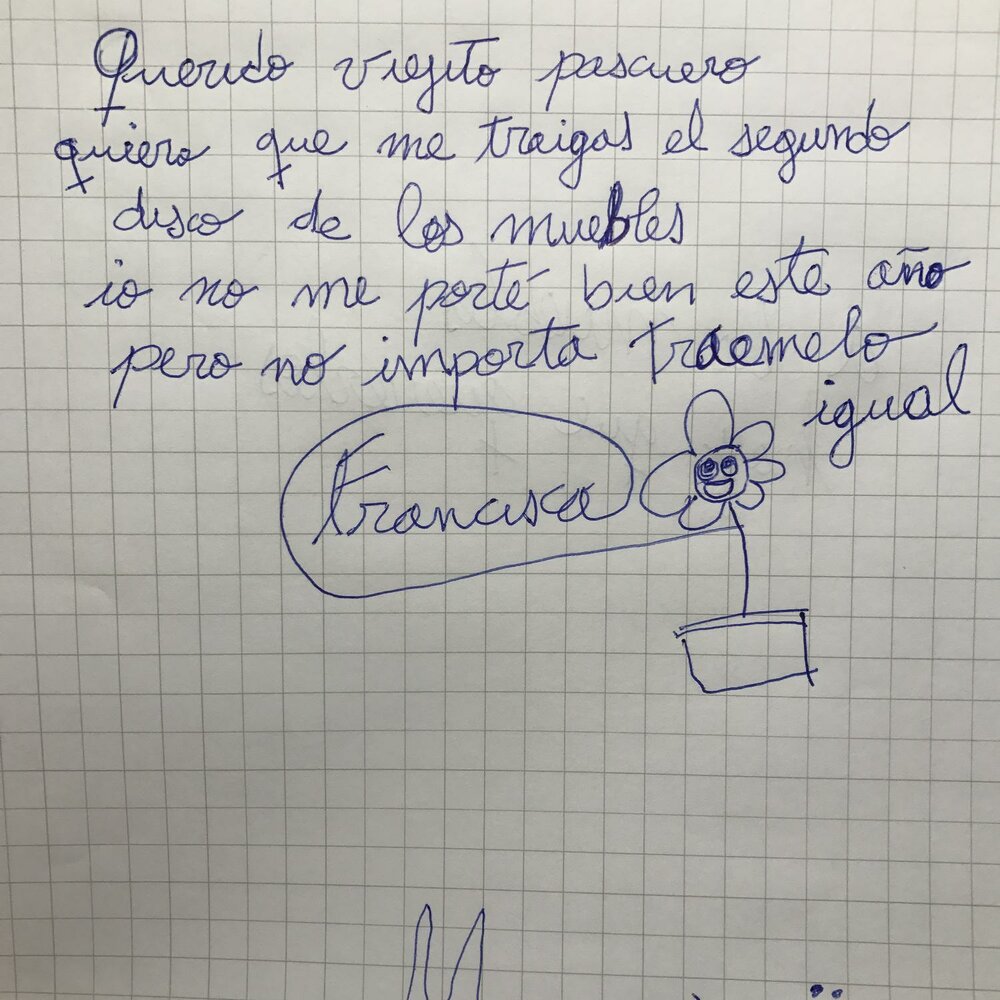 Querido viejito pascuero
quiero que me traigas el segundo
disco de los muebles
io no me porté bien este año
pero no importa traemelo
igual
Francisca